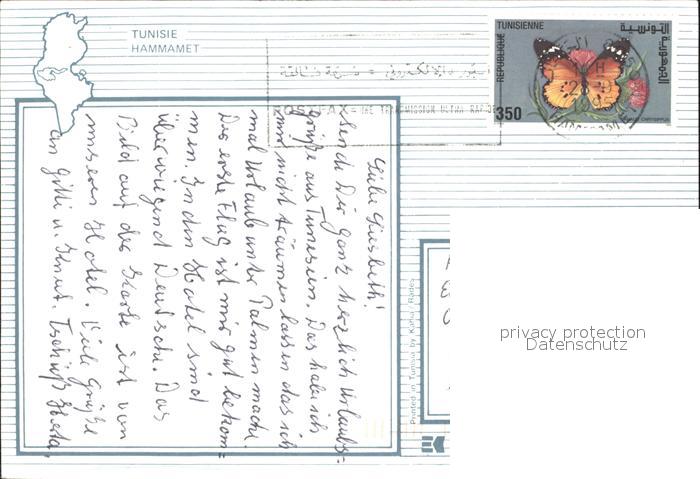 TUNISIE
HAMMAMET
REPUBLIQUE
TUNISIENNE
الجمهورية
التونسية
350
POSTFAX = UNE TRANSMISSION ULTRA RAPIDE
Liebe Liesbeth!
sende Dir ganz herzlich Urlaubs-
grüße aus Tunesien. Das habe ich
mir nicht träumen lassen das ich
mal Urlaub unter Palmen mache.
Der erste Flug ist mir gut bekom=
men. In den Hotel sind
überwiegend Deutsche. Das
Bild auf der Karte ist von
unseren Hotel. Viele Grüße
an Gitti u. Knut. Tschüß Herta,
Printed in Tunisia by Kahia / Rades
privacy protection
Datenschutz